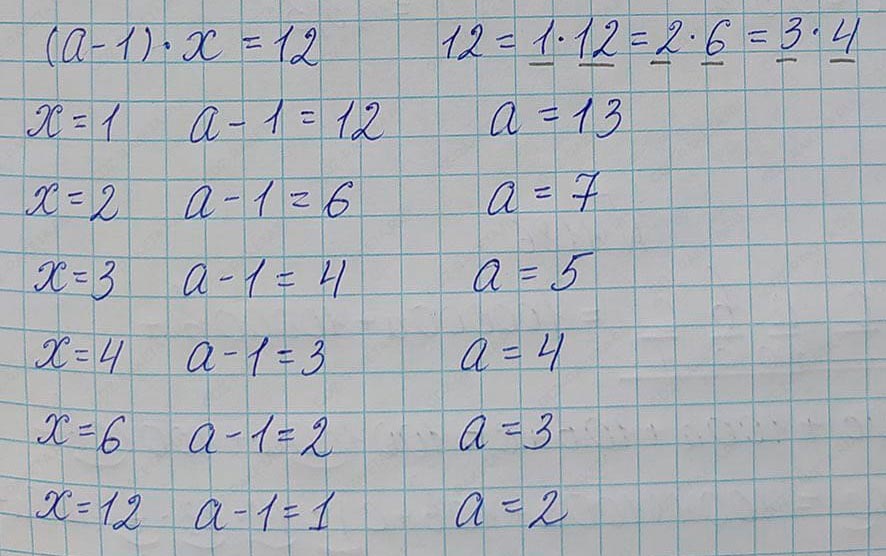 (a-1)·x=12 12=1·12=2·6=3·4
x=1 a-1=12 a=13
x=2 a-1=6 a=7
x=3 a-1=4 a=5
x=4 a-1=3 a=4
x=6 a-1=2 a=3
x=12 a-1=1 a=2